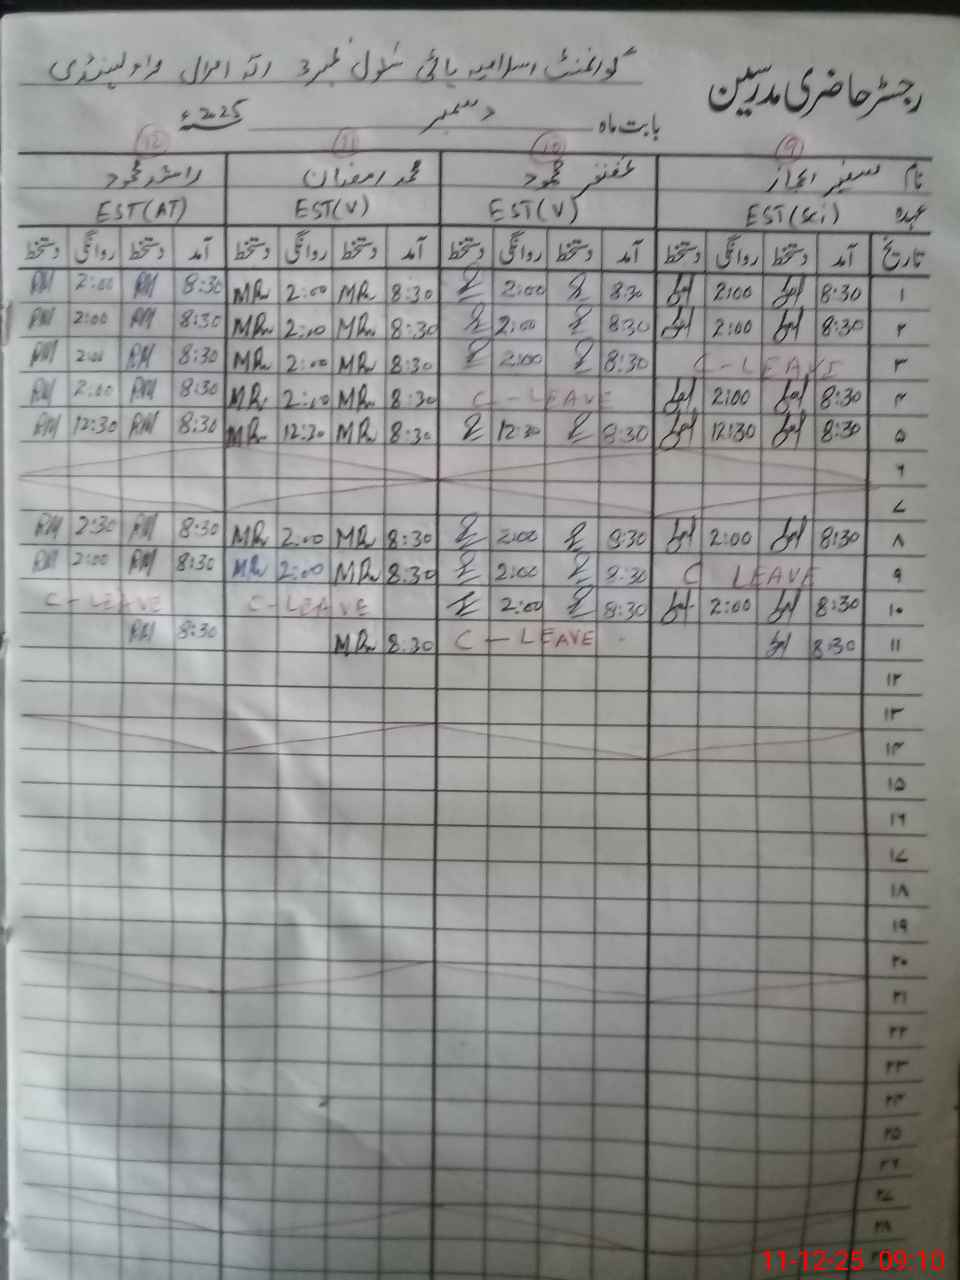 رجسٹر حاضری مدرسین
گورنمنٹ اسلامیہ ہائی سکول نمبر 3 رتہ امرال راولپنڈی
بابت ماہ دسمبر 2025ء
9 10 11 12
نام سفیر اعجاز غضنفر محمود محمد رمضان راشد محمود
عہدہ EST(Sci) EST(V) EST(V) EST(AT)
تاریخ آمد دستخط روانگی دستخط آمد دستخط روانگی دستخط آمد دستخط روانگی دستخط آمد دستخط روانگی دستخط
۱ 8:30 2:00 8:30 2:00 8:30 MR 2:00 MR 8:30 RM 2:00 RM
۲ 8:30 2:00 8:30 2:00 8:30 MR 2:00 MR 8:30 RM 2:00 RM
۳ C-LEAVE 8:30 2:00 8:30 MR 2:00 MR 8:30 RM 2:00 RM
۴ 8:30 2:00 C-LEAVE 8:30 MR 2:00 MR 8:30 RM 2:00 RM
۵ 8:30 12:30 8:30 12:30 8:30 MR 12:30 MR 8:30 RM 12:30 RM
۶
۷
۸ 8:30 2:00 8:30 2:00 8:30 MR 2:00 MR 8:30 RM 2:30 RM
۹ C LEAVE 8:30 2:00 8:30 MR 2:00 MR 8:30 RM 2:00 RM
۱۰ 8:30 2:00 8:30 2:00 C-LEAVE C-LEAVE
۱۱ 8:30 C-LEAVE 8:30 MR 8:30 RM
۱۲
۱۳
۱۴
۱۵
۱۶
۱۷
۱۸
۱۹
۲۰
۲۱
۲۲
۲۳
۲۴
۲۵
۲۶
۲۷
۲۸
11-12-25 09:10